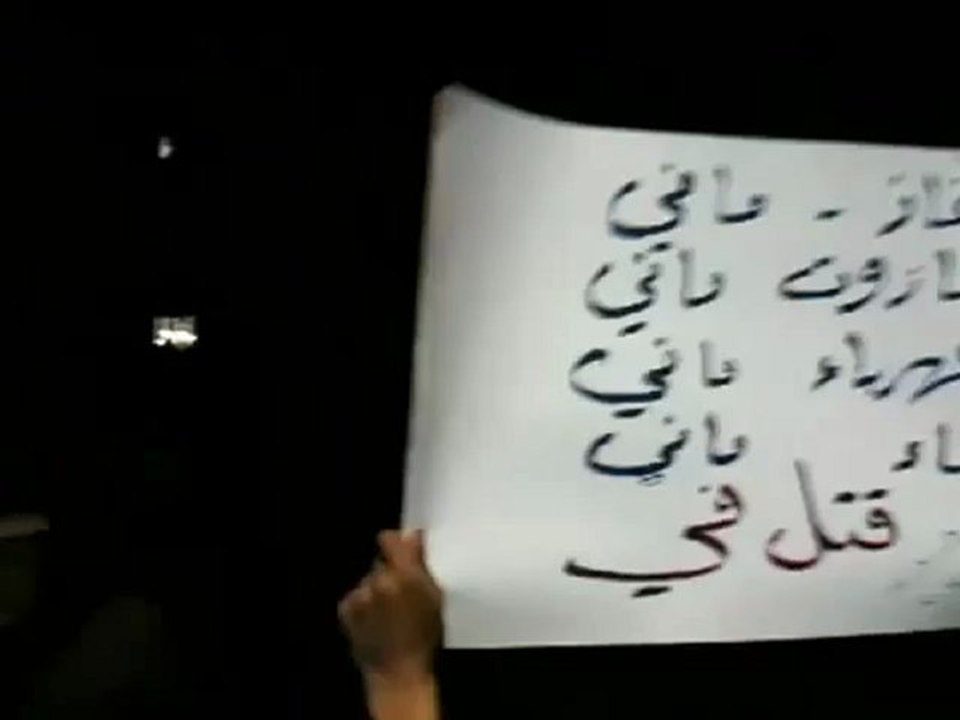 غاز - مافي
مازوت مافي
كهرباء مافي
ماء مافي
قتل في